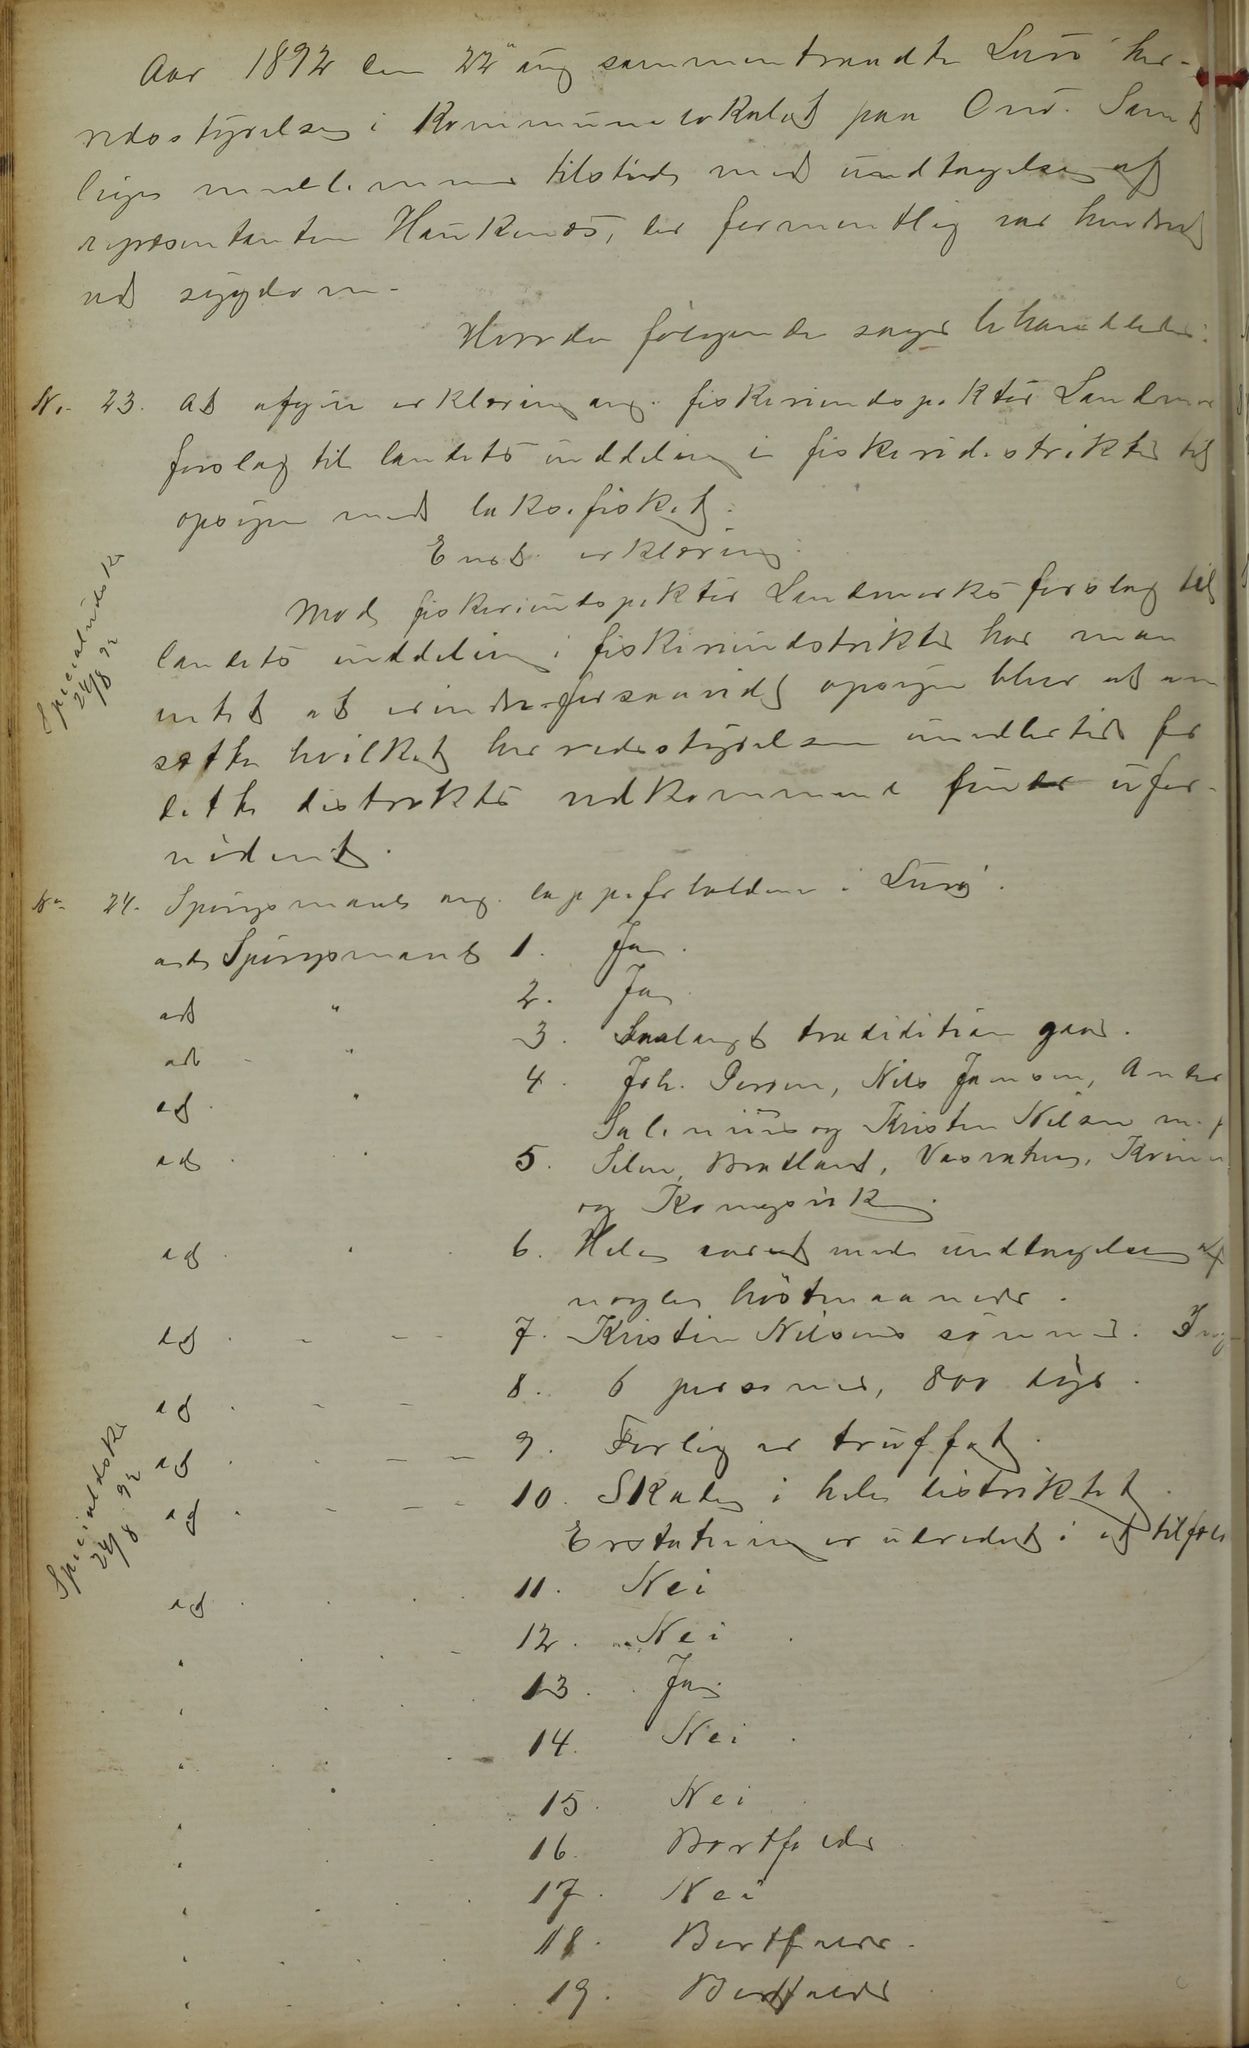 Aar 1892 den 22' aug sammentraadte Lurö her-
redsstyrelse i Kommunelokalet paa Onö. Samt
lige medlemmer tilstede med undtagelse af
repræsentanten Haukenæs, der formentlig var hindret
ved sygdom.
Hvorda følgende sager behandledes:
No. 23. At afgive erklæring ang. fiskeriindspektör Landmarks
forslag til landets inddeling i fiskeridistrikter til
opsyn med laksefisket.
Enst. erklæring:
Mod fiskeriindspektör Landmarks forslag til
landets inddeling i fiskeriindstrikter har man
intet at erindre forsaavidt opsyn bliver at an
sætte hvilket herredsstyrelsen imidlertid for
dette distrikts vedkommende finder ufor-
nödent.
Specialudsk.
24/8 92
No. 24. Spörgsmaal ang. lappeforholdene i Lurö.
ad Spörgsmaal 1. Ja.
ad " 2. Ja
ad " 3. Saalangt tradidition gaar.
ad " 4. Joh. Persen, Nils Jonsen, Anders
og Kristen Nilsen
ad 5. Silen, Bratland,
og Kongsvik.
ad 6. Hele aaret med undtagelse af
nogle höstmaaneder.
ad 7. Kristen Nilsens sönner.
ad 8. 6 personer, 800 dyr.
ad 9. Forlig er truffet.
ad 10. Skade i hele distriktet.
Erstatning er udredet i et tilfæld
Specialudsk.
24/8 92
ad 11. Nei
12. Nei
13. Ja
14. Nei
15. Nei
16. Bortfalder
17. Nei
18. Bortfalder.
19. Bortfalder